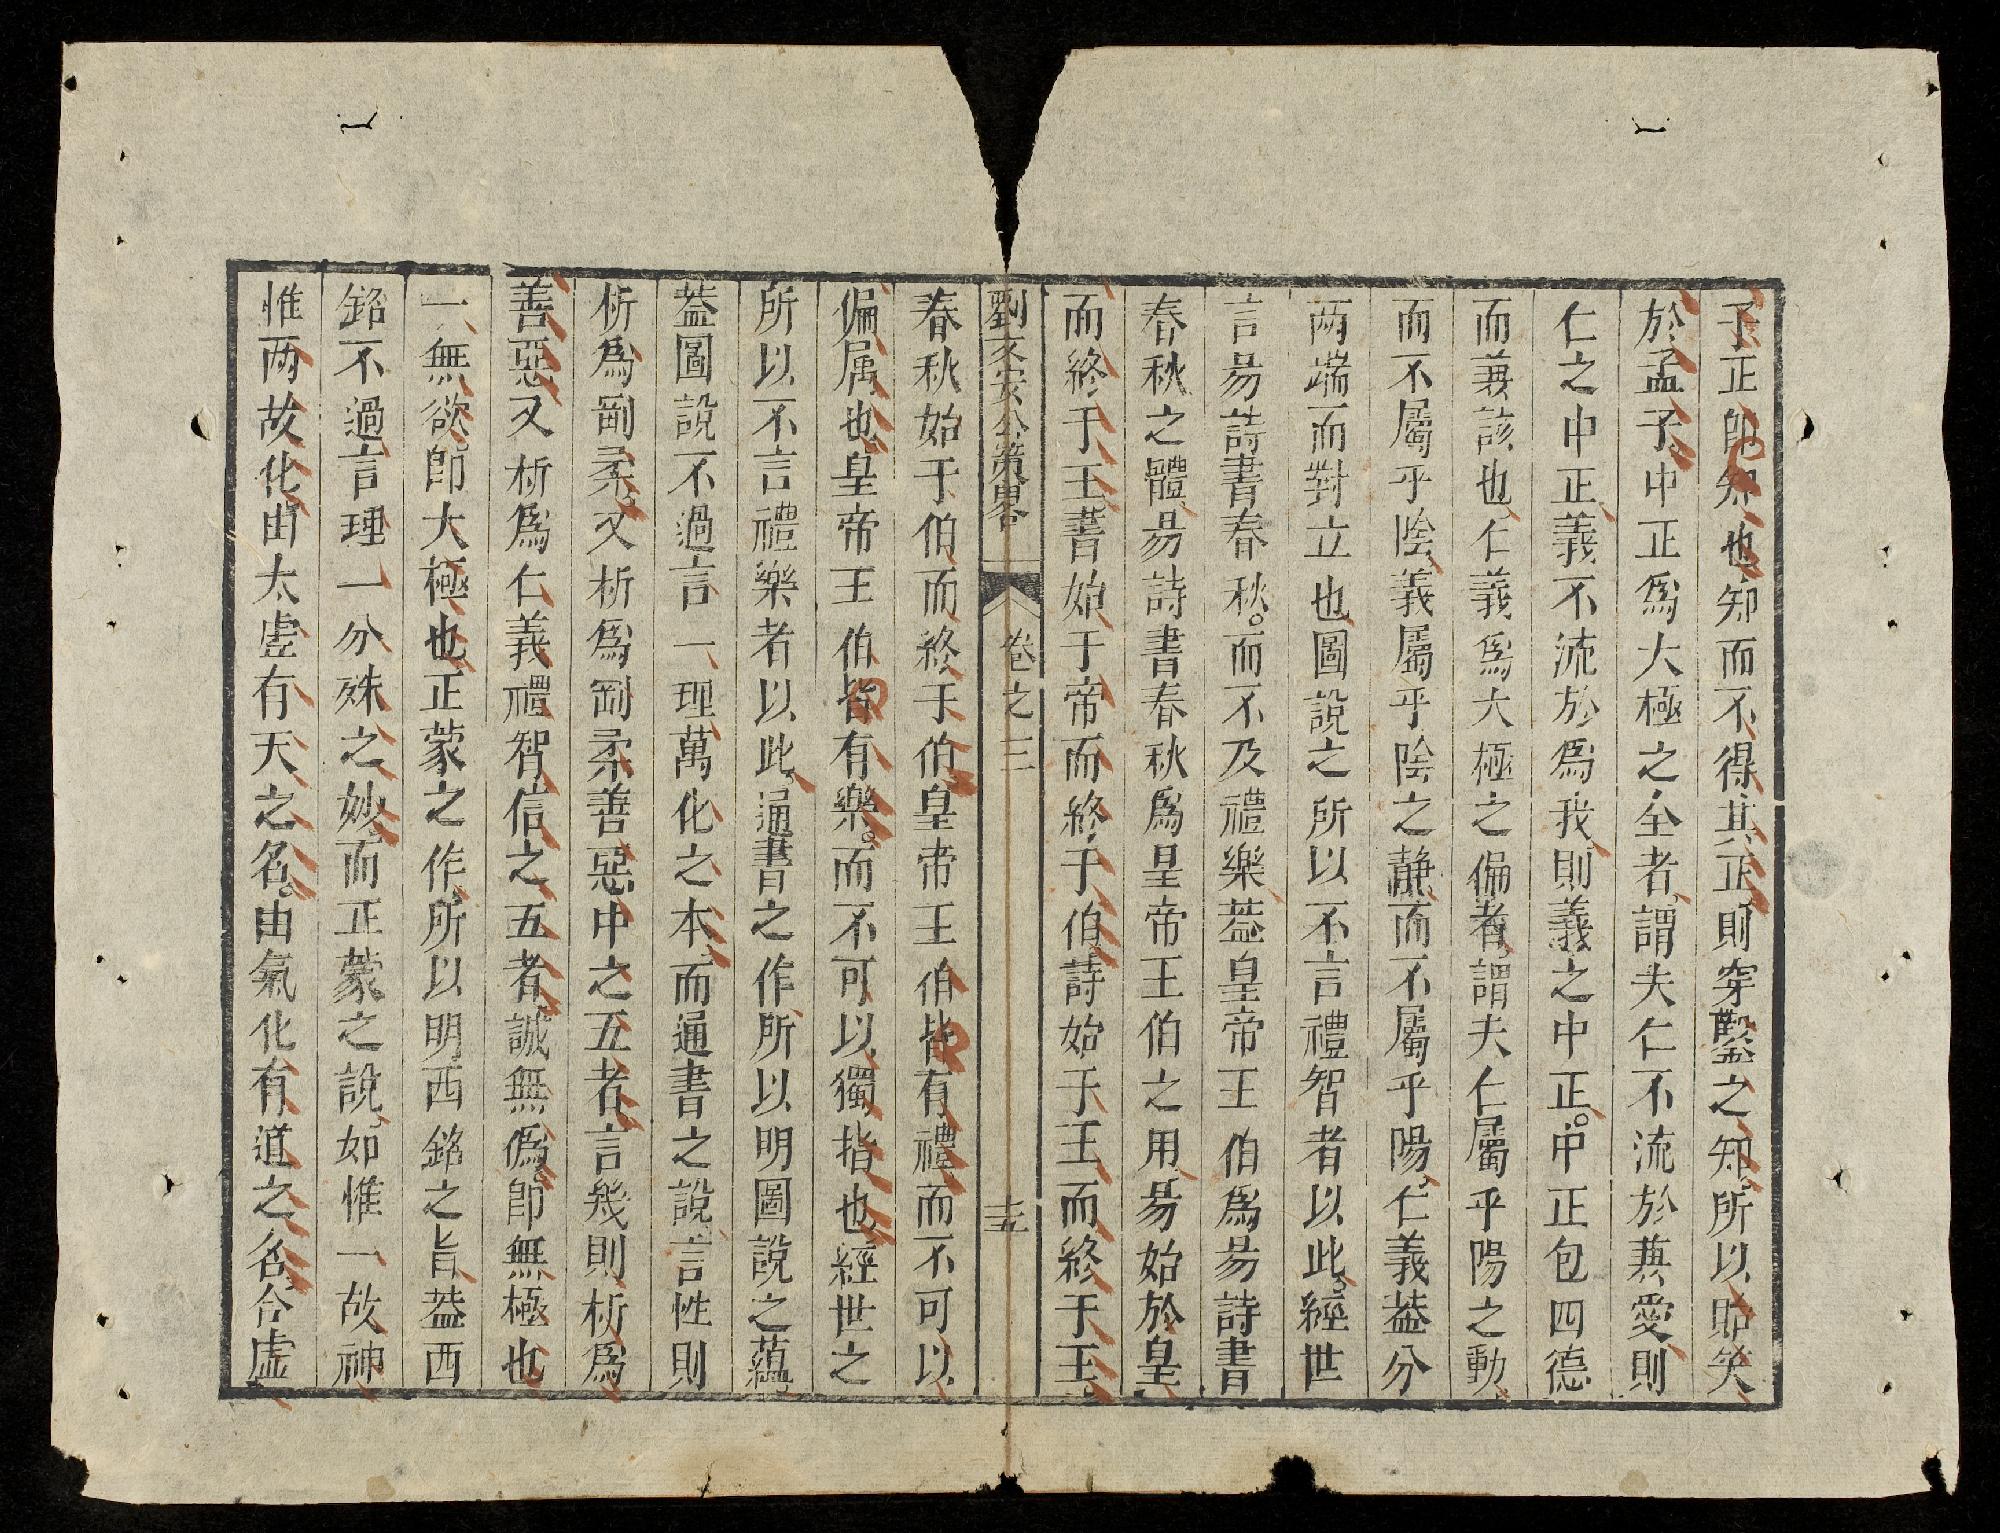 子正卽知也知而不得其正則穿鑿之知所以貽笑
於孟子中正爲大極之全者謂夫仁不流於兼愛則
仁之中正義不流於爲我則義之中正中正包四德
而兼該也仁義爲大極之偏者謂夫仁屬乎陽之動
而不屬乎陰義屬乎陰之静而不屬乎陽仁義葢分
两端而對立也圖說之所以不言禮智者以此經世
言昜詩書春秋而不及禮樂葢皇帝王伯爲昜詩書
春秋之體昜詩書春秋爲皇帝王伯之用昜始於皇
而終于王書始于帝而終于伯詩始于王而終于王
劉文安公策畧
卷之三
十五
春秋始于伯而終于伯皇帝王伯皆有禮而不可以
偏属也皇帝王伯皆有樂而不可以獨指也經世之
所以不言禮樂者以此通書之作所以明圖說之蘊
葢圖說不過言一理萬化之本而通書之說言性則
析爲剛柔又析爲剛柔善惡中之五者言幾則析爲
善惡又析爲仁義禮智信之五者誠無僞卽無極也
一無欲卽大極也正蒙之作所以明西銘之旨葢西
銘不過言理一分殊之妙而正蒙之說如惟一故神
惟两故化由太虚有天之名由氣化有道之名合虚